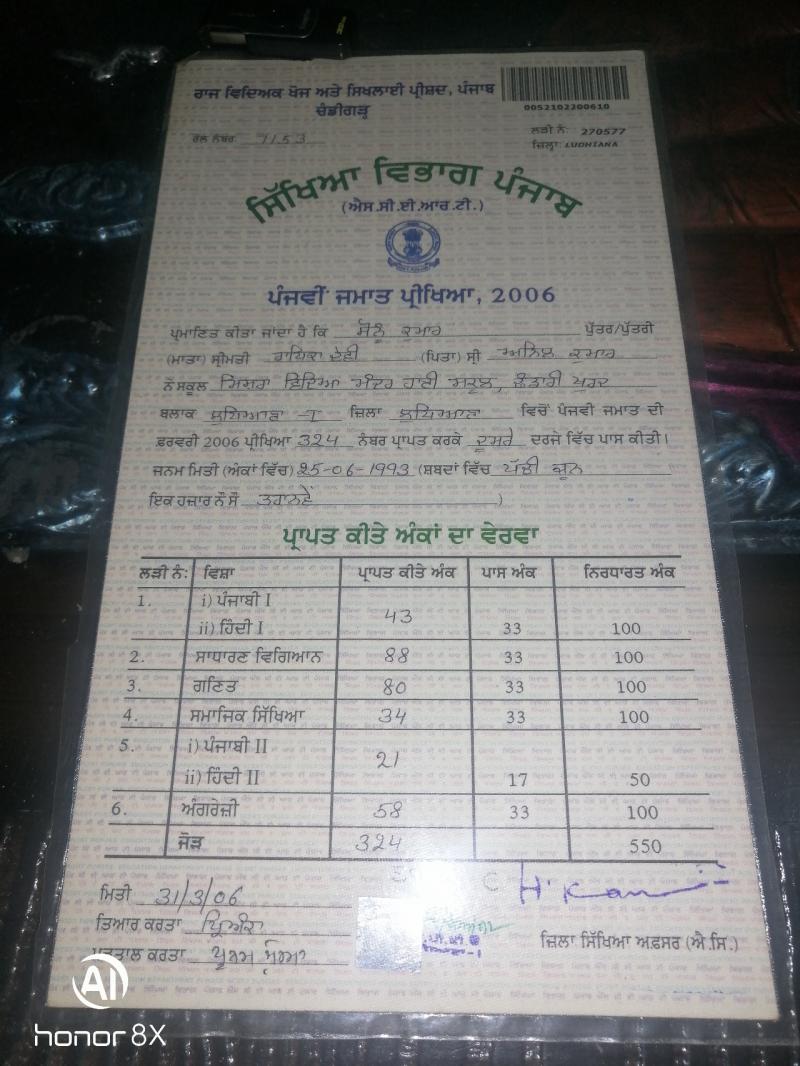 ਰਾਜ ਵਿਦਿਅਕ ਖੋਜ ਅਤੇ ਸਿਖਲਾਈ ਪ੍ਰੀਸ਼ਦ, ਪੰਜਾਬ
ਚੰਡੀਗੜ੍ਹ
0052102200610
ਰੋਲ ਨੰਬਰ 7153
ਲੜੀ ਨੰ: 270577
ਜ਼ਿਲ੍ਹਾ: LUDHIANA
ਸਿੱਖਿਆ ਵਿਭਾਗ ਪੰਜਾਬ
(ਐਸ.ਸੀ.ਈ.ਆਰ.ਟੀ.)
ਪੰਜਵੀਂ ਜਮਾਤ ਪ੍ਰੀਖਿਆ, 2006
ਪ੍ਰਮਾਣਿਤ ਕੀਤਾ ਜਾਂਦਾ ਹੈ ਕਿ ਸੋਨੂੰ ਕੁਮਾਰ ਪੁੱਤਰ/ਪੁੱਤਰੀ
(ਮਾਤਾ) ਸ਼੍ਰੀਮਤੀ ਰਾਧਿਕਾ ਦੇਵੀ (ਪਿਤਾ) ਸ਼੍ਰੀ ਅਨਿਲ ਕੁਮਾਰ
ਨੇ ਸਕੂਲ ਵਿਦਿਆ ਮੰਦਰ ਹਾਈ ਸਕੂਲ,
ਬਲਾਕ ਲੁਧਿਆਣਾ -1 ਜ਼ਿਲਾ ਲੁਧਿਆਣਾ ਵਿਚੋਂ ਪੰਜਵੀਂ ਜਮਾਤ ਦੀ
ਫ਼ਰਵਰੀ 2006 ਪ੍ਰੀਖਿਆ 324 ਨੰਬਰ ਪ੍ਰਾਪਤ ਕਰਕੇ ਦੂਸਰੇ ਦਰਜੇ ਵਿੱਚ ਪਾਸ ਕੀਤੀ।
ਜਨਮ ਮਿਤੀ (ਅੰਕਾਂ ਵਿੱਚ) 25-06-1993 (ਸ਼ਬਦਾਂ ਵਿੱਚ ਪੱਚੀ ਜੂਨ
ਇਕ ਹਜ਼ਾਰ ਨੌ ਸੌ ਤਰਾਨਵੇਂ )
ਪ੍ਰਾਪਤ ਕੀਤੇ ਅੰਕਾਂ ਦਾ ਵੇਰਵਾ
ਲੜੀ ਨੰ: ਵਿਸ਼ਾ ਪ੍ਰਾਪਤ ਕੀਤੇ ਅੰਕ ਪਾਸ ਅੰਕ ਨਿਰਧਾਰਤ ਅੰਕ
1. i) ਪੰਜਾਬੀ I
ii) ਹਿੰਦੀ I 43 33 100
2. ਸਾਧਾਰਣ ਵਿਗਿਆਨ 88 33 100
3. ਗਣਿਤ 80 33 100
4. ਸਮਾਜਿਕ ਸਿੱਖਿਆ 34 33 100
5. i) ਪੰਜਾਬੀ II
ii) ਹਿੰਦੀ II 21 17 50
6. ਅੰਗਰੇਜ਼ੀ 58 33 100
ਜੋੜ 324 550
ਮਿਤੀ 31/3/06
ਤਿਆਰ ਕਰਤਾ ਪ੍ਰਿਅੰਕਾ
ਪੜਤਾਲ ਕਰਤਾ ਪੂਨਮ
ਜ਼ਿਲਾ ਸਿੱਖਿਆ ਅਫ਼ਸਰ (ਐ.ਸਿ.)
AI
honor 8X